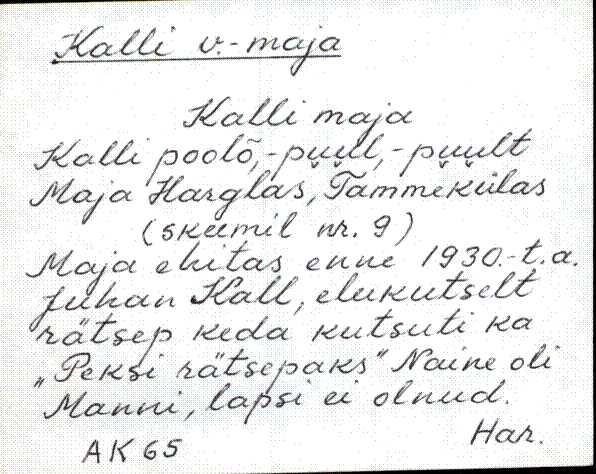 Kalli v.-maja
Kalli maja
Kalli poolõ,-puul,-puult
Maja Harglas, Tammekülas
(skeemil nr. 9)
Maja ehitas enne 1930.-t.a.
Juhan Kall, elukutselt
rätsep keda kutsuti ka
„Peksi rätsepaks" Naine oli
Manni, lapsi ei olnud.
AK 65 Har.